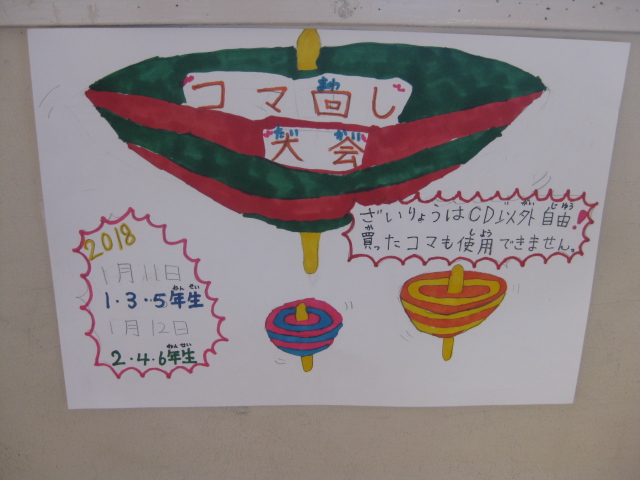 コマ回し
大会
ざいりょうはCD以外自由!
買ったコマも使用できません。
2018
1月11日
1・3・5年生
1月12日
2・4・6年生